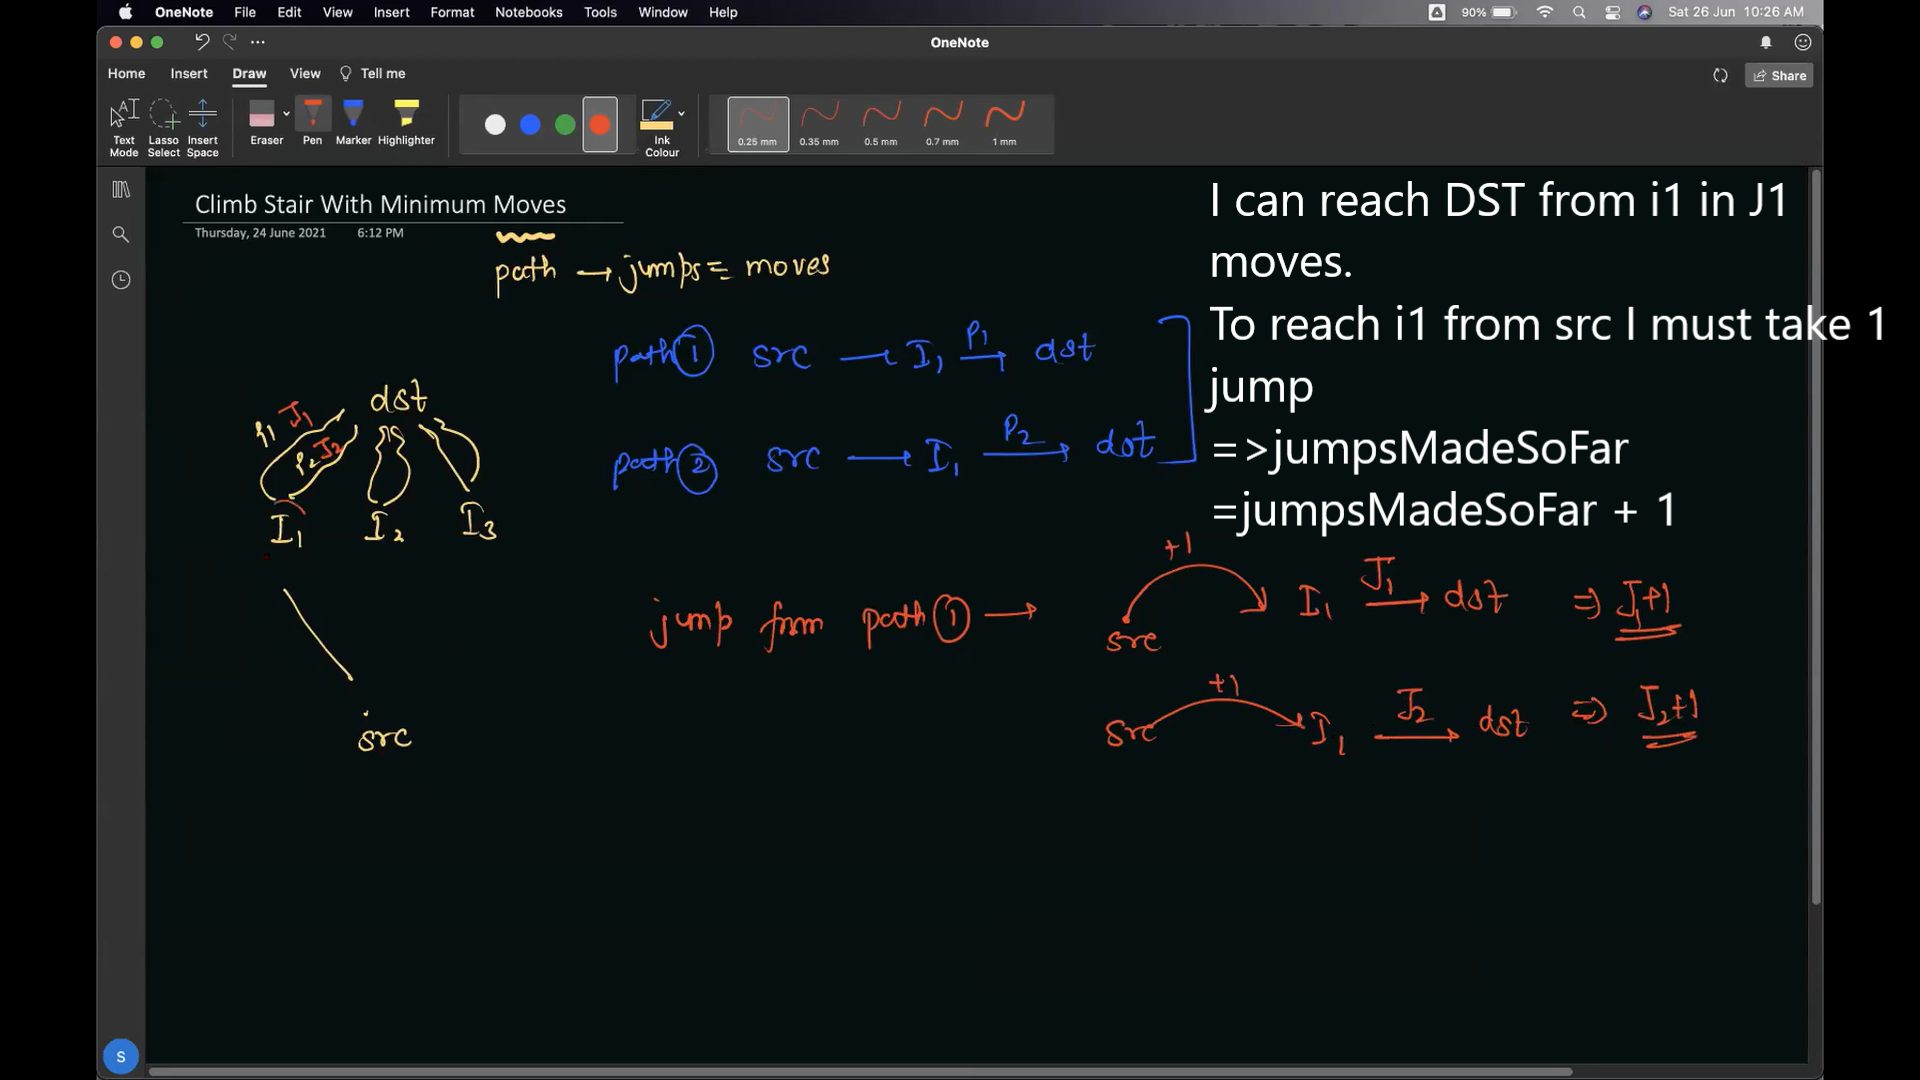 OneNote File Edit View Insert Format Notebooks Tools Window Help
90% Sat 26 Jun 10:26 AM
OneNote
Home Insert Draw View Tell me
Share
Text Mode
Lasso Select
Insert Space
Eraser
Pen
Marker
Highlighter
Ink Colour
0.25 mm
0.35 mm
0.5 mm
0.7 mm
1 mm
Climb Stair With Minimum Moves
Thursday, 24 June 2021 6:12 PM
path → jumps = moves
I can reach DST from i1 in J1
moves.
To reach i1 from src I must take 1
jump
=>jumpsMadeSoFar
=jumpsMadeSoFar + 1
path ① src → I₁ P₁ → dst
path ② src → I₁ P₂ → dst
dst
P₁ J₁
P₂ J₂
I₁ I₂ I₃
src
jump from path ① →
src +1 I₁ J₁ → dst ⇒ J₁+1
src +1 I₁ J₂ → dst ⇒ J₂+1
S